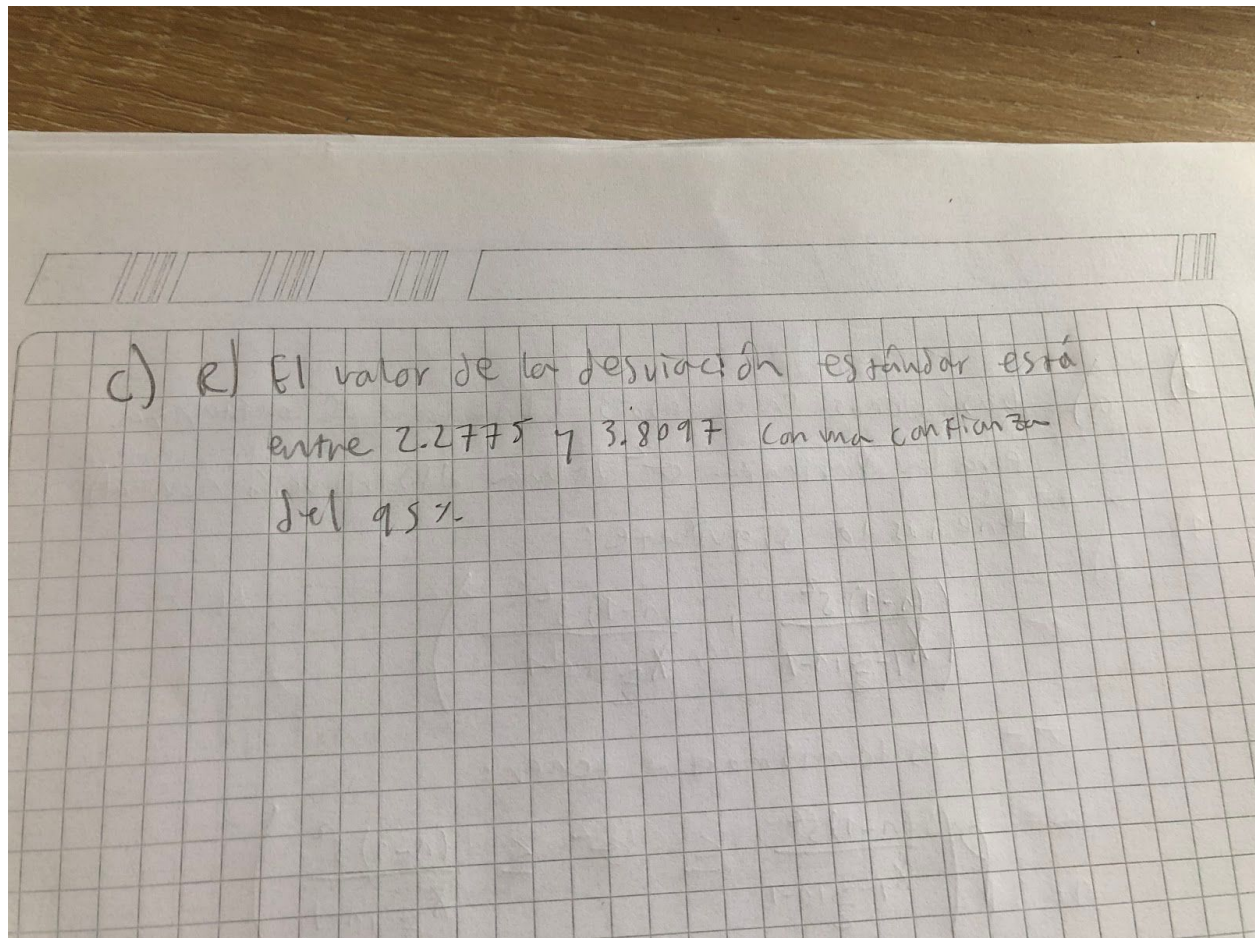 c) R) El valor de la desviación estándar está
entre 2.2775 y 3.8097 con una confianza
del 95%